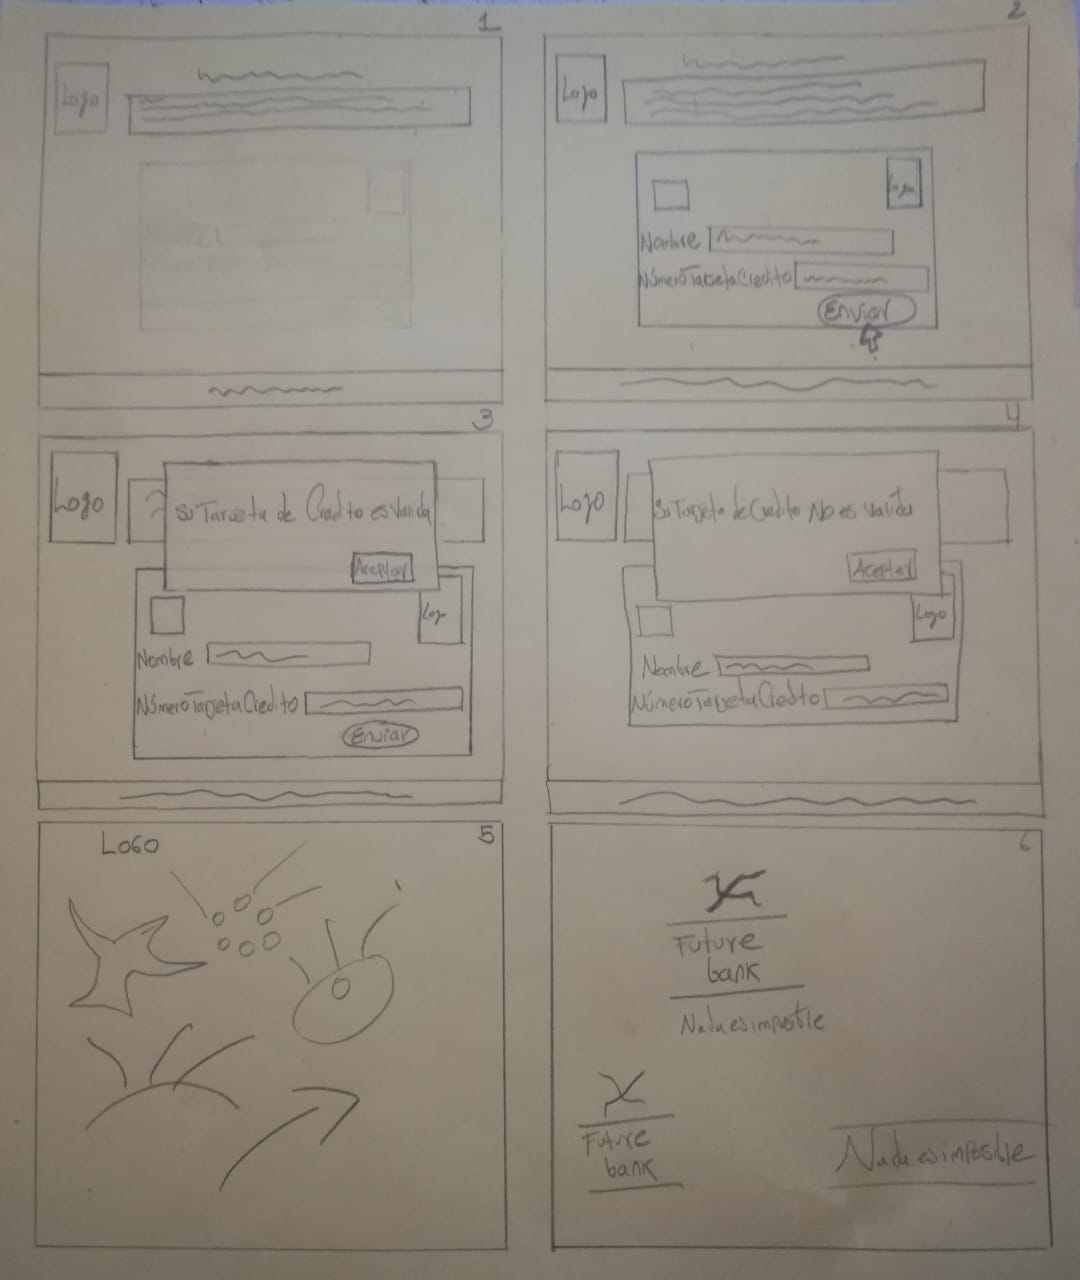 1
Logo
2
Logo
Logo
Nombre
NúmeroTarjetaCredito
Enviar
3
Logo
Su Tarjeta de Credito es Valida
Aceptar
Logo
Nombre
NúmeroTarjetaCredito
Enviar
4
Logo
Su Tarjeta de Credito No es Valida
Aceptar
Logo
Nombre
NúmeroTarjetaCredito
5
LOGO
6
Future
bank
Nada es imposible
Future
bank
Nada es imposible